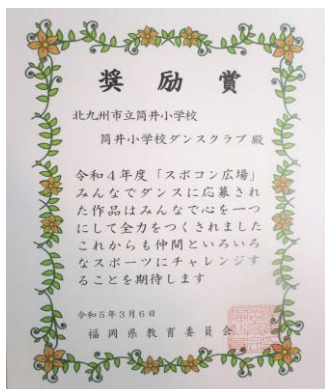 奨励賞
北九州市立筒井小学校
筒井小学校ダンスクラブ 殿
令和4年度「スポコン広場」
みんなでダンスに応募され
た作品はみんなで心を一つ
にして全力をつくされました
これからも仲間といろいろ
なスポーツにチャレンジす
ることを期待します
令和5年3月6日
福岡県教育委員会